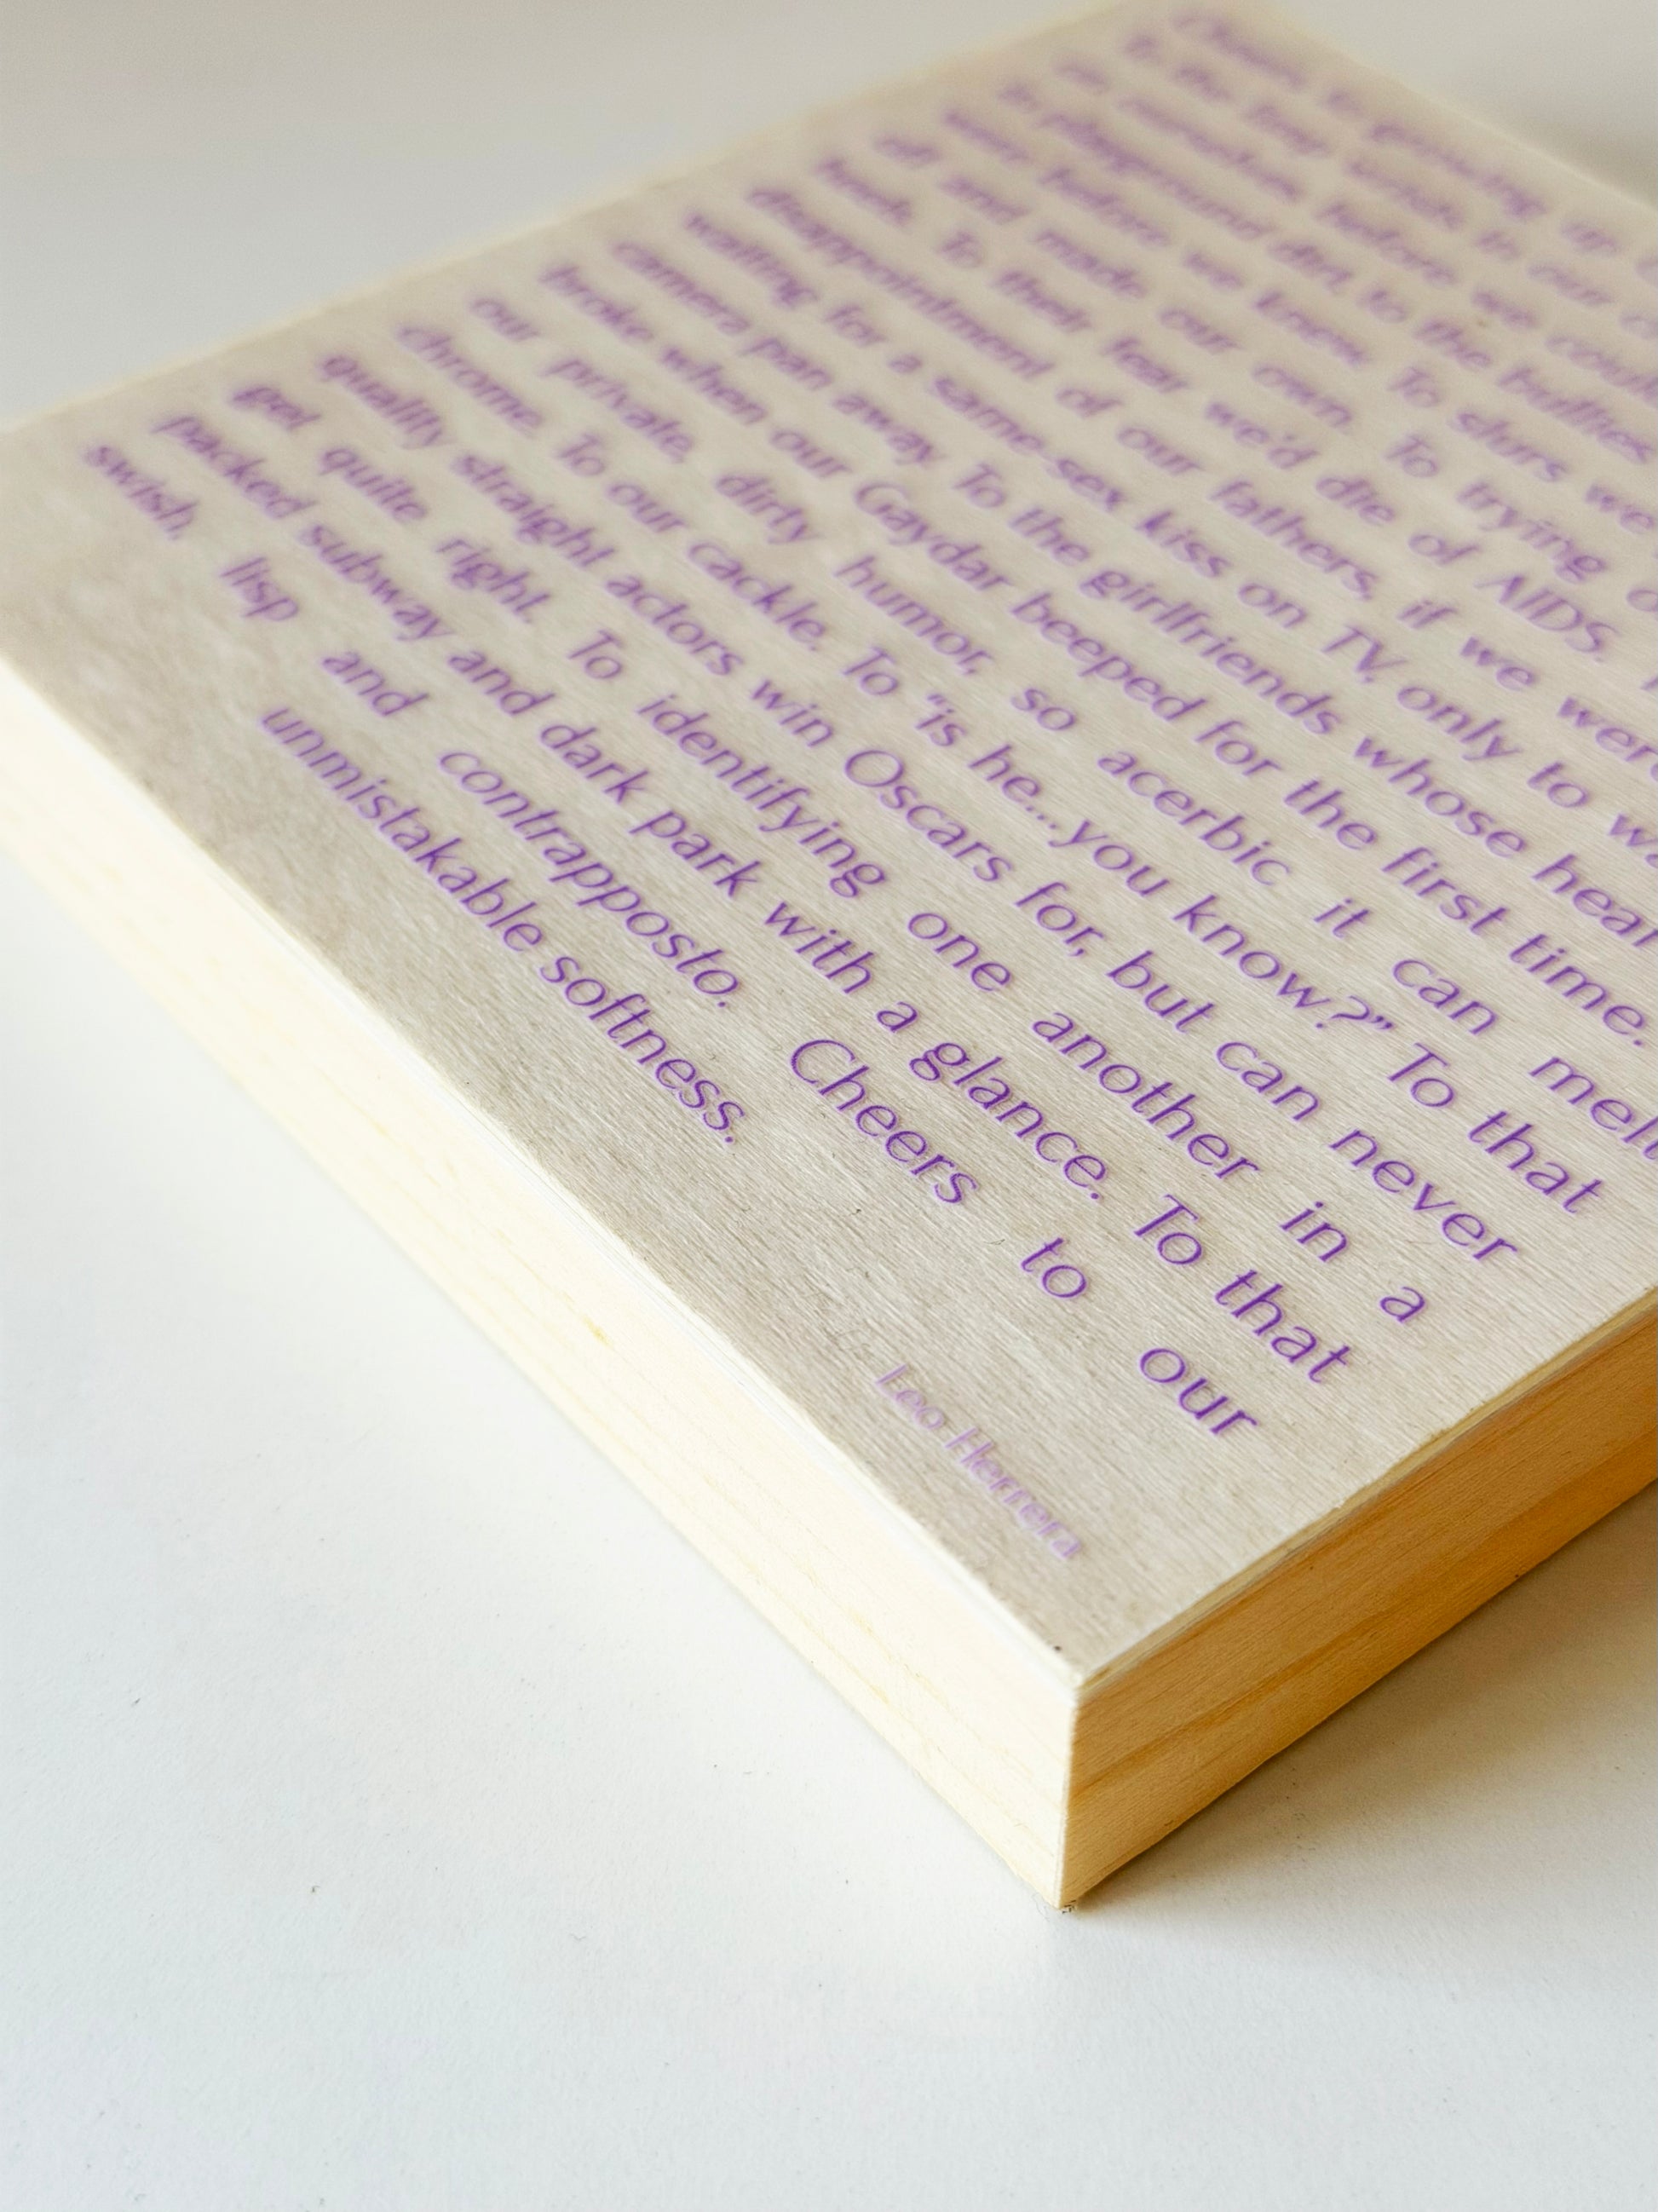 Cheers to growing up
to the limp wrists in our
on ourselves before we could
in playground dirt, to the bullies
were before we knew. To slurs we
off and made our own. To trying
heads. To their fear we'd die of AIDS.
disappointment of our fathers, if we were
waiting for a same-sex kiss on TV, only to
camera pan away. To the girlfriends whose
broke when our Gaydar beeped for the first time.
our private, dirty humor, so acerbic it can melt
chrome. To our cackle. To "is he...you know?" To that
quality straight actors win Oscars for, but can never
get quite right. To identifying one another in a
packed subway and dark park with a glance. To that
swish, lisp and contrapposto. Cheers to our
unmistakable softness.
Leo Herrera